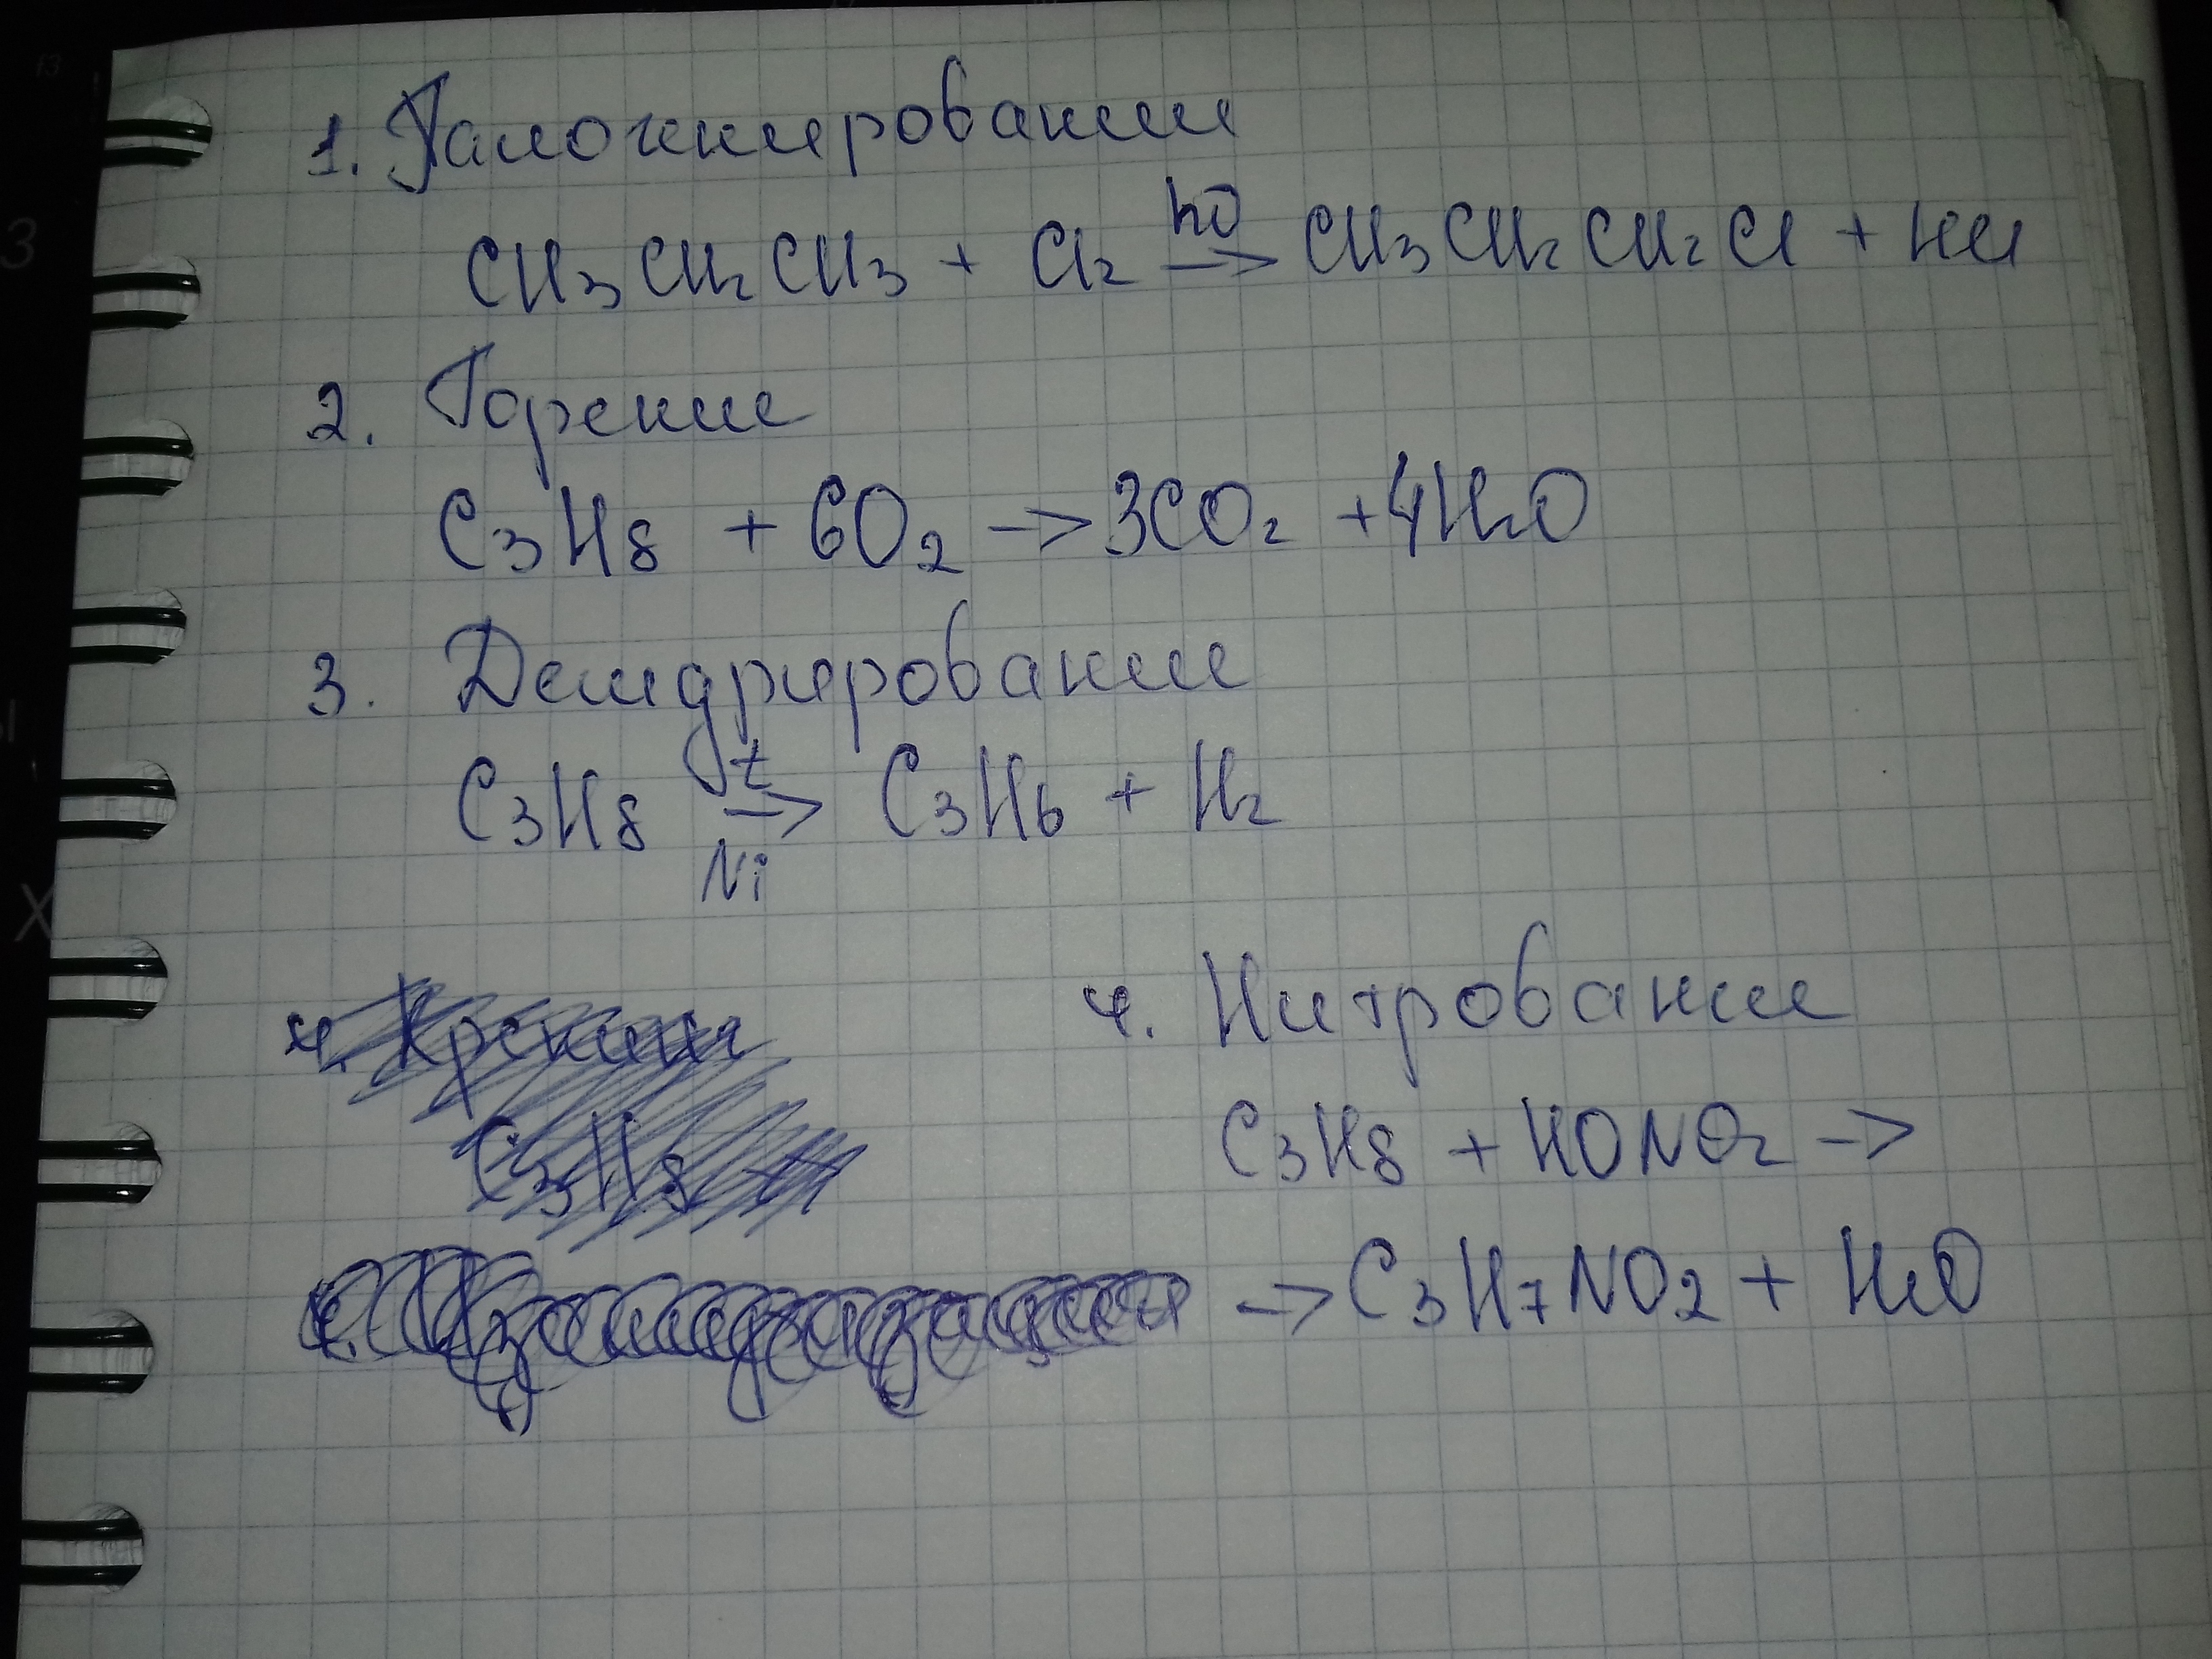 1. Галогенирование
CH3CH2CH3 + Cl2 hν → CH3CH2CH2Cl + HCl
2. Горение
C3H8 + 6O2 → 3CO2 + 4H2O
3. Дегидрирование
C3H8 t → Ni C3H6 + H2
4. Крекинг
C3H8 →
4. Изомеризация
4. Нитрование
C3H8 + HONO2 →
→ C3H7NO2 + H2O